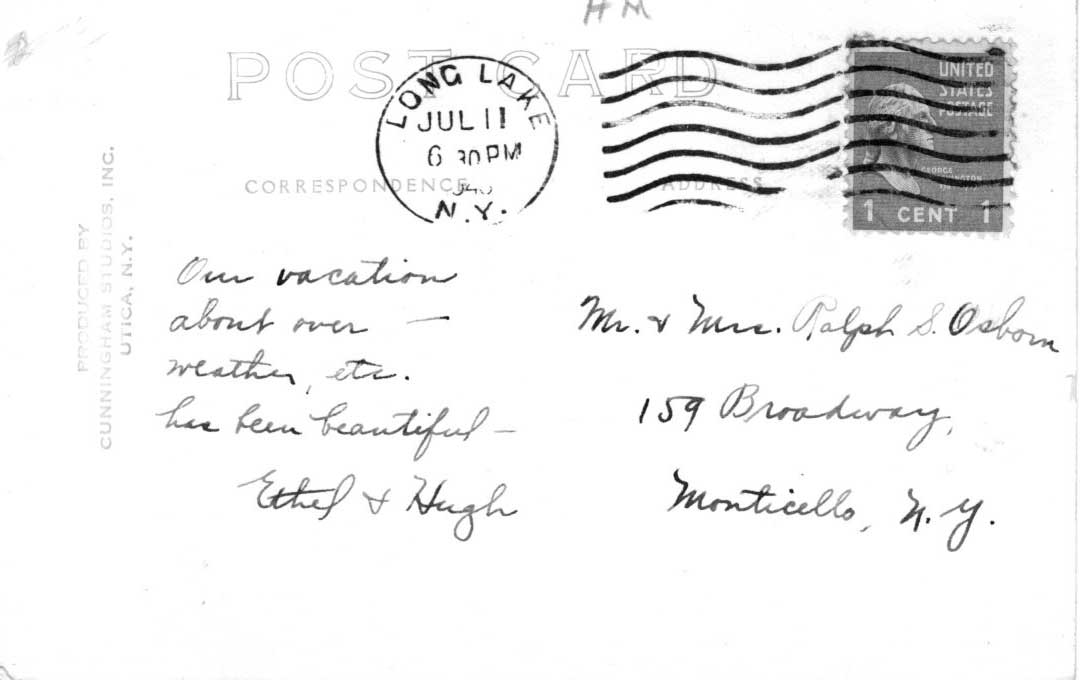 HM
POST CARD
LONG LAKE
JUL 11
6 30 PM
N.Y.
UNITED
STATES
POSTAGE
GEORGE
WASHINGTON
1 CENT 1
CORRESPONDENCE
ADDRESS
PRODUCED BY
CUNNINGHAM STUDIOS, INC.
UTICA, N.Y.
Our vacation
about over —
weather, etc.
has been beautiful —
Ethel & Hugh
Mr. & Mrs. Ralph S. Osborn
159 Broadway,
Monticello, N.Y.